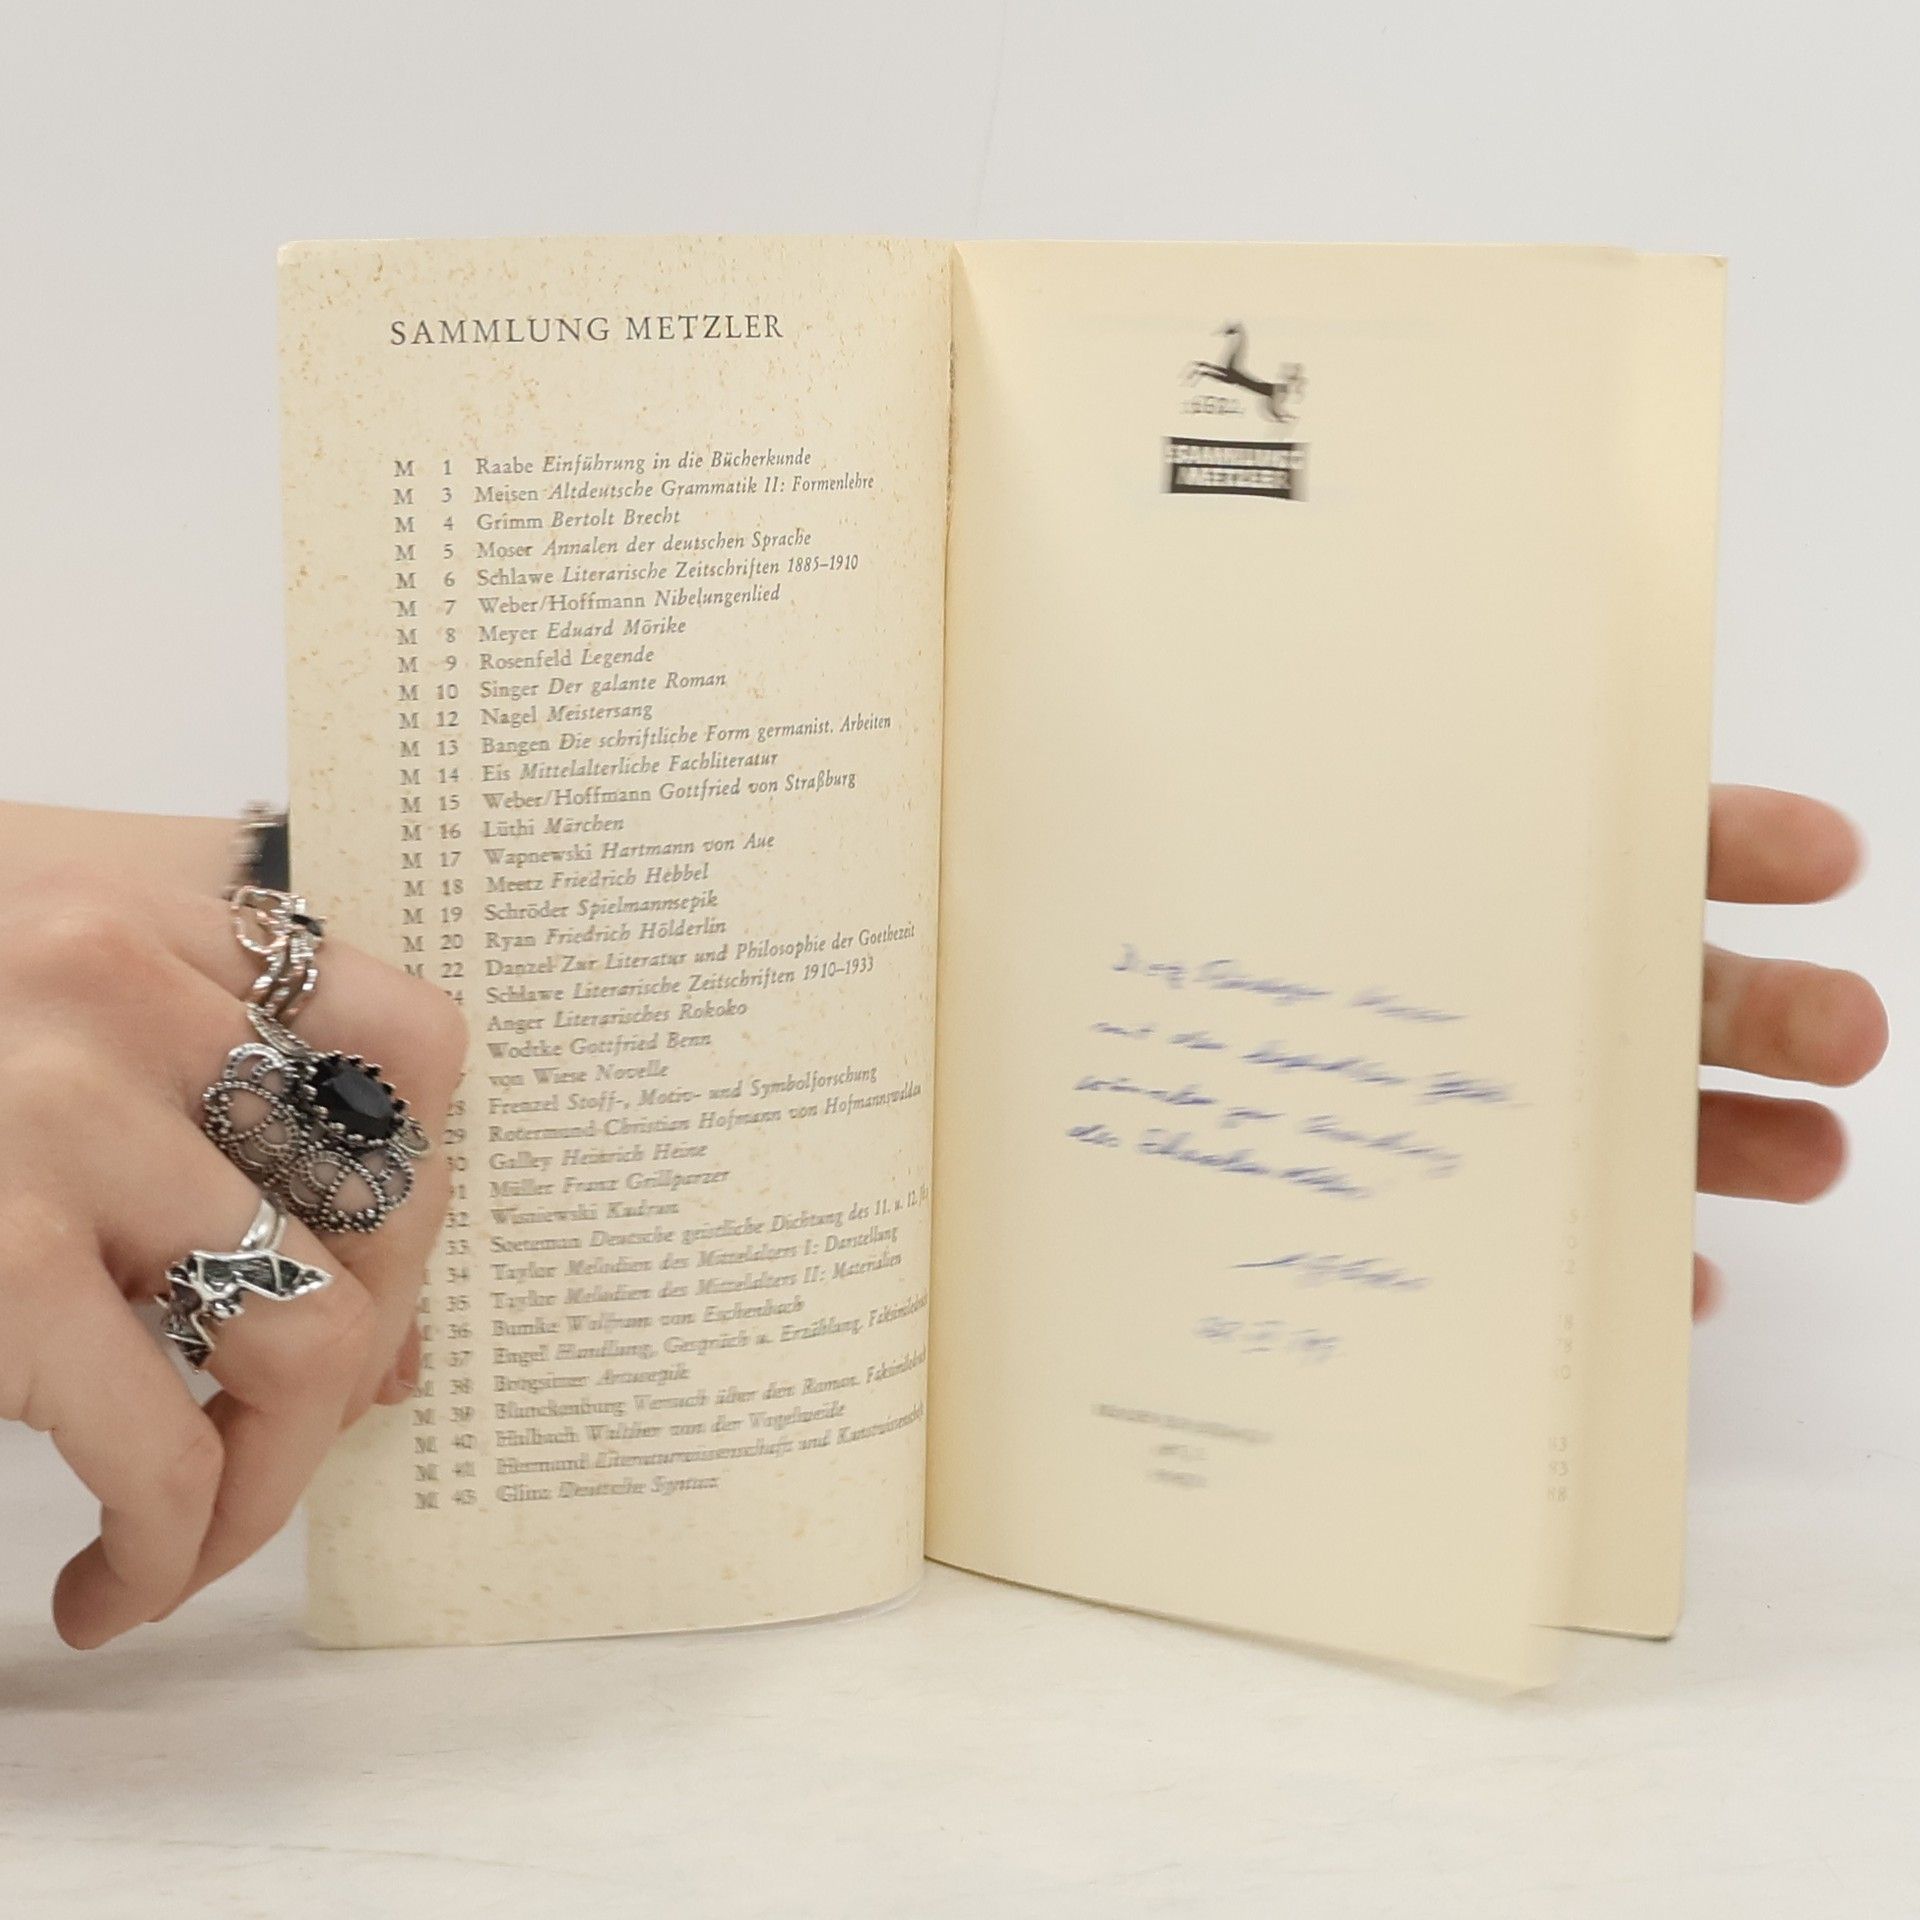 SAMMLUNG METZLER
M 1 Raabe Einführung in die Bücherkunde
M 3 Meisen Altdeutsche Grammatik II: Formenlehre
M 4 Grimm Bertolt Brecht
M 5 Moser Annalen der deutschen Sprache
M 6 Schlawe Literarische Zeitschriften 1885–1910
M 7 Weber/Hoffmann Nibelungenlied
M 8 Meyer Eduard Mörike
M 9 Rosenfeld Legende
M 10 Singer Der galante Roman
M 12 Nagel Meistersang
M 13 Bangen Die schriftliche Form germanist. Arbeiten
M 14 Eis Mittelalterliche Fachliteratur
M 15 Weber/Hoffmann Gottfried von Straßburg
M 16 Lüthi Märchen
M 17 Wapnewski Hartmann von Aue
M 18 Meetz Friedrich Hebbel
M 19 Schröder Spielmannsepik
M 20 Ryan Friedrich Hölderlin
M 22 Danzel Zur Literatur und Philosophie der Goethezeit
24 Schlawe Literarische Zeitschriften 1910–1933
Anger Literarisches Rokoko
Wodtke Gottfried Benn
von Wiese Novelle
28 Frenzel Stoff-, Motiv- und Symbolforschung
29 Rotermund Christian Hofmann von Hofmannswaldau
30 Galley Heinrich Heine
31 Müller Franz Grillparzer
32 Wisniewski Kudrun
33 Soeteman Deutsche geistliche Dichtung des 11. u. 12. Jh.s
34 Taylor Melodien des Mittelalters I: Darstellung
M 35 Taylor Melodien des Mittelalters II: Materialien
M 36 Bumke Wolfram von Eschenbach
M 37 Engel Handlung, Gespräch u. Erzählung. Faksimiledruck
M 38 Brogsitter Artusepik
M 39 Blanckenburg Versuch über den Roman. Faksimiledruck
M 40 Halbach Walther von der Vogelweide
M 41 Hermand Literaturwissenschaft und Kunstwissenschaft
M 43 Glinz Deutsche Syntax
1682
SAMMLUNG
METZLER